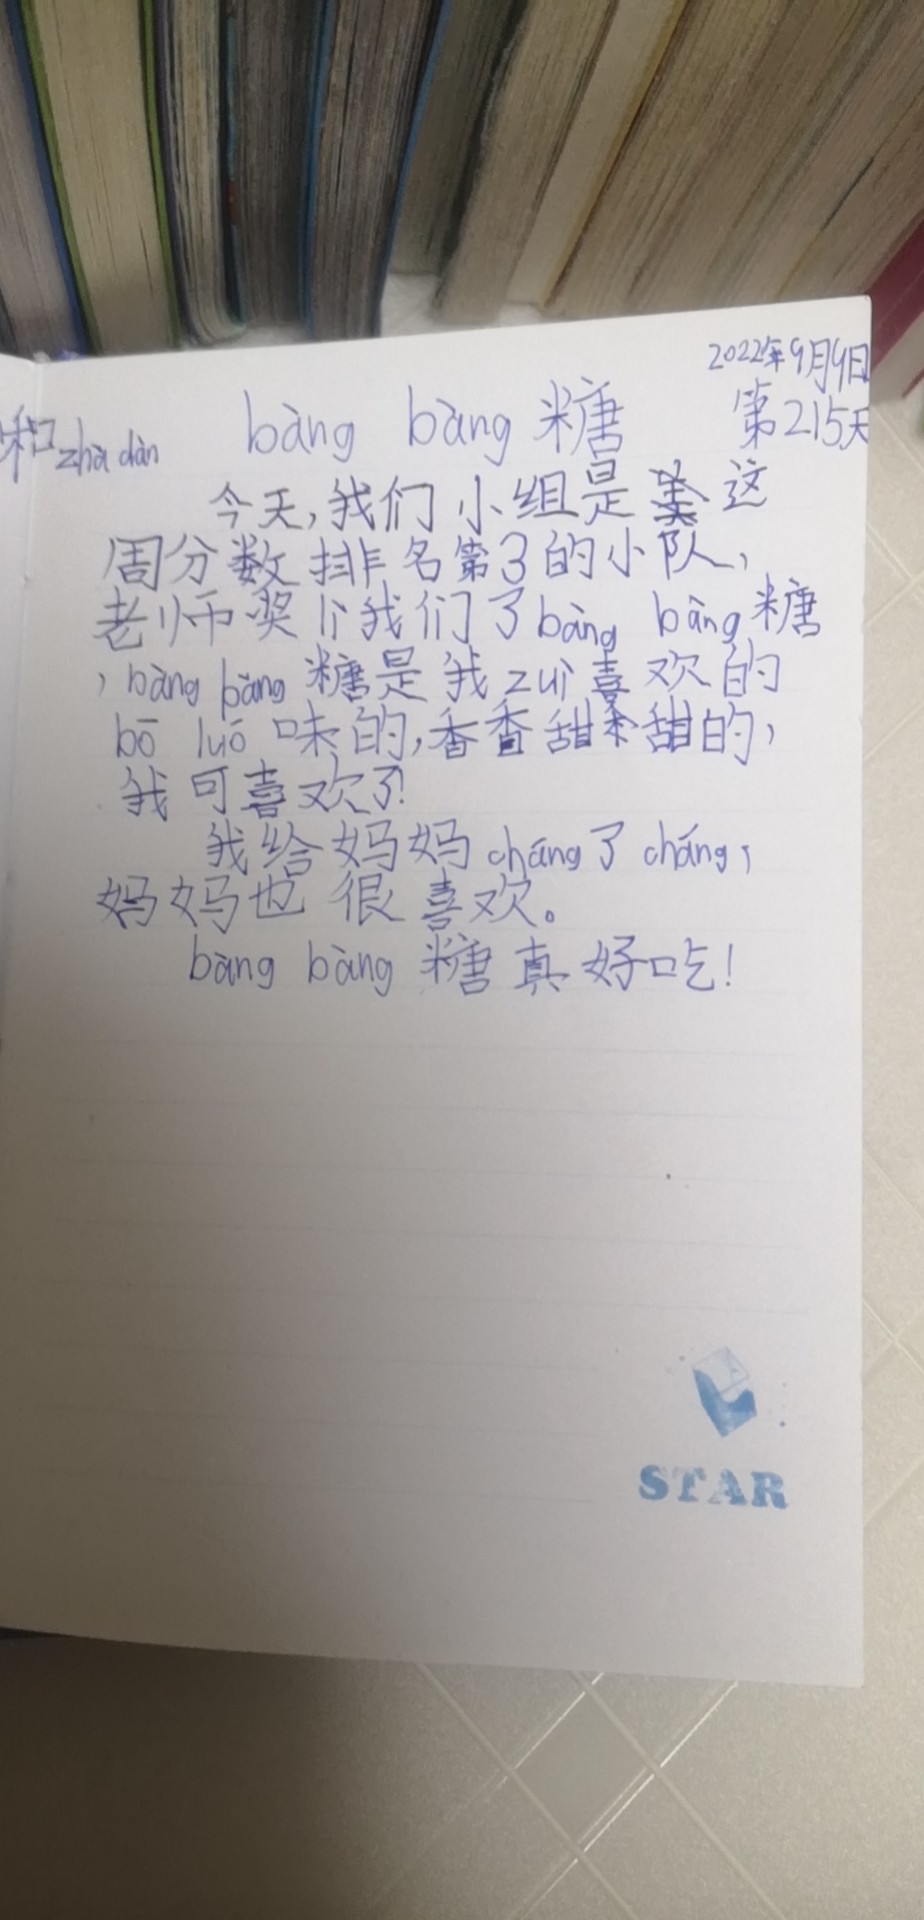 2022年9月9日
和zhà dàn
bàng bàng 糖
第215天
今天,我们小组是这
周分数排名第3的小队,
老师奖个我们了bàng bàng糖
,bàng bàng糖是我zuì喜欢的
bō luó 味的,香香甜甜的,
我可喜欢了!
我给妈妈cháng了cháng,
妈妈也很喜欢。
bàng bàng 糖真好吃!
STAR